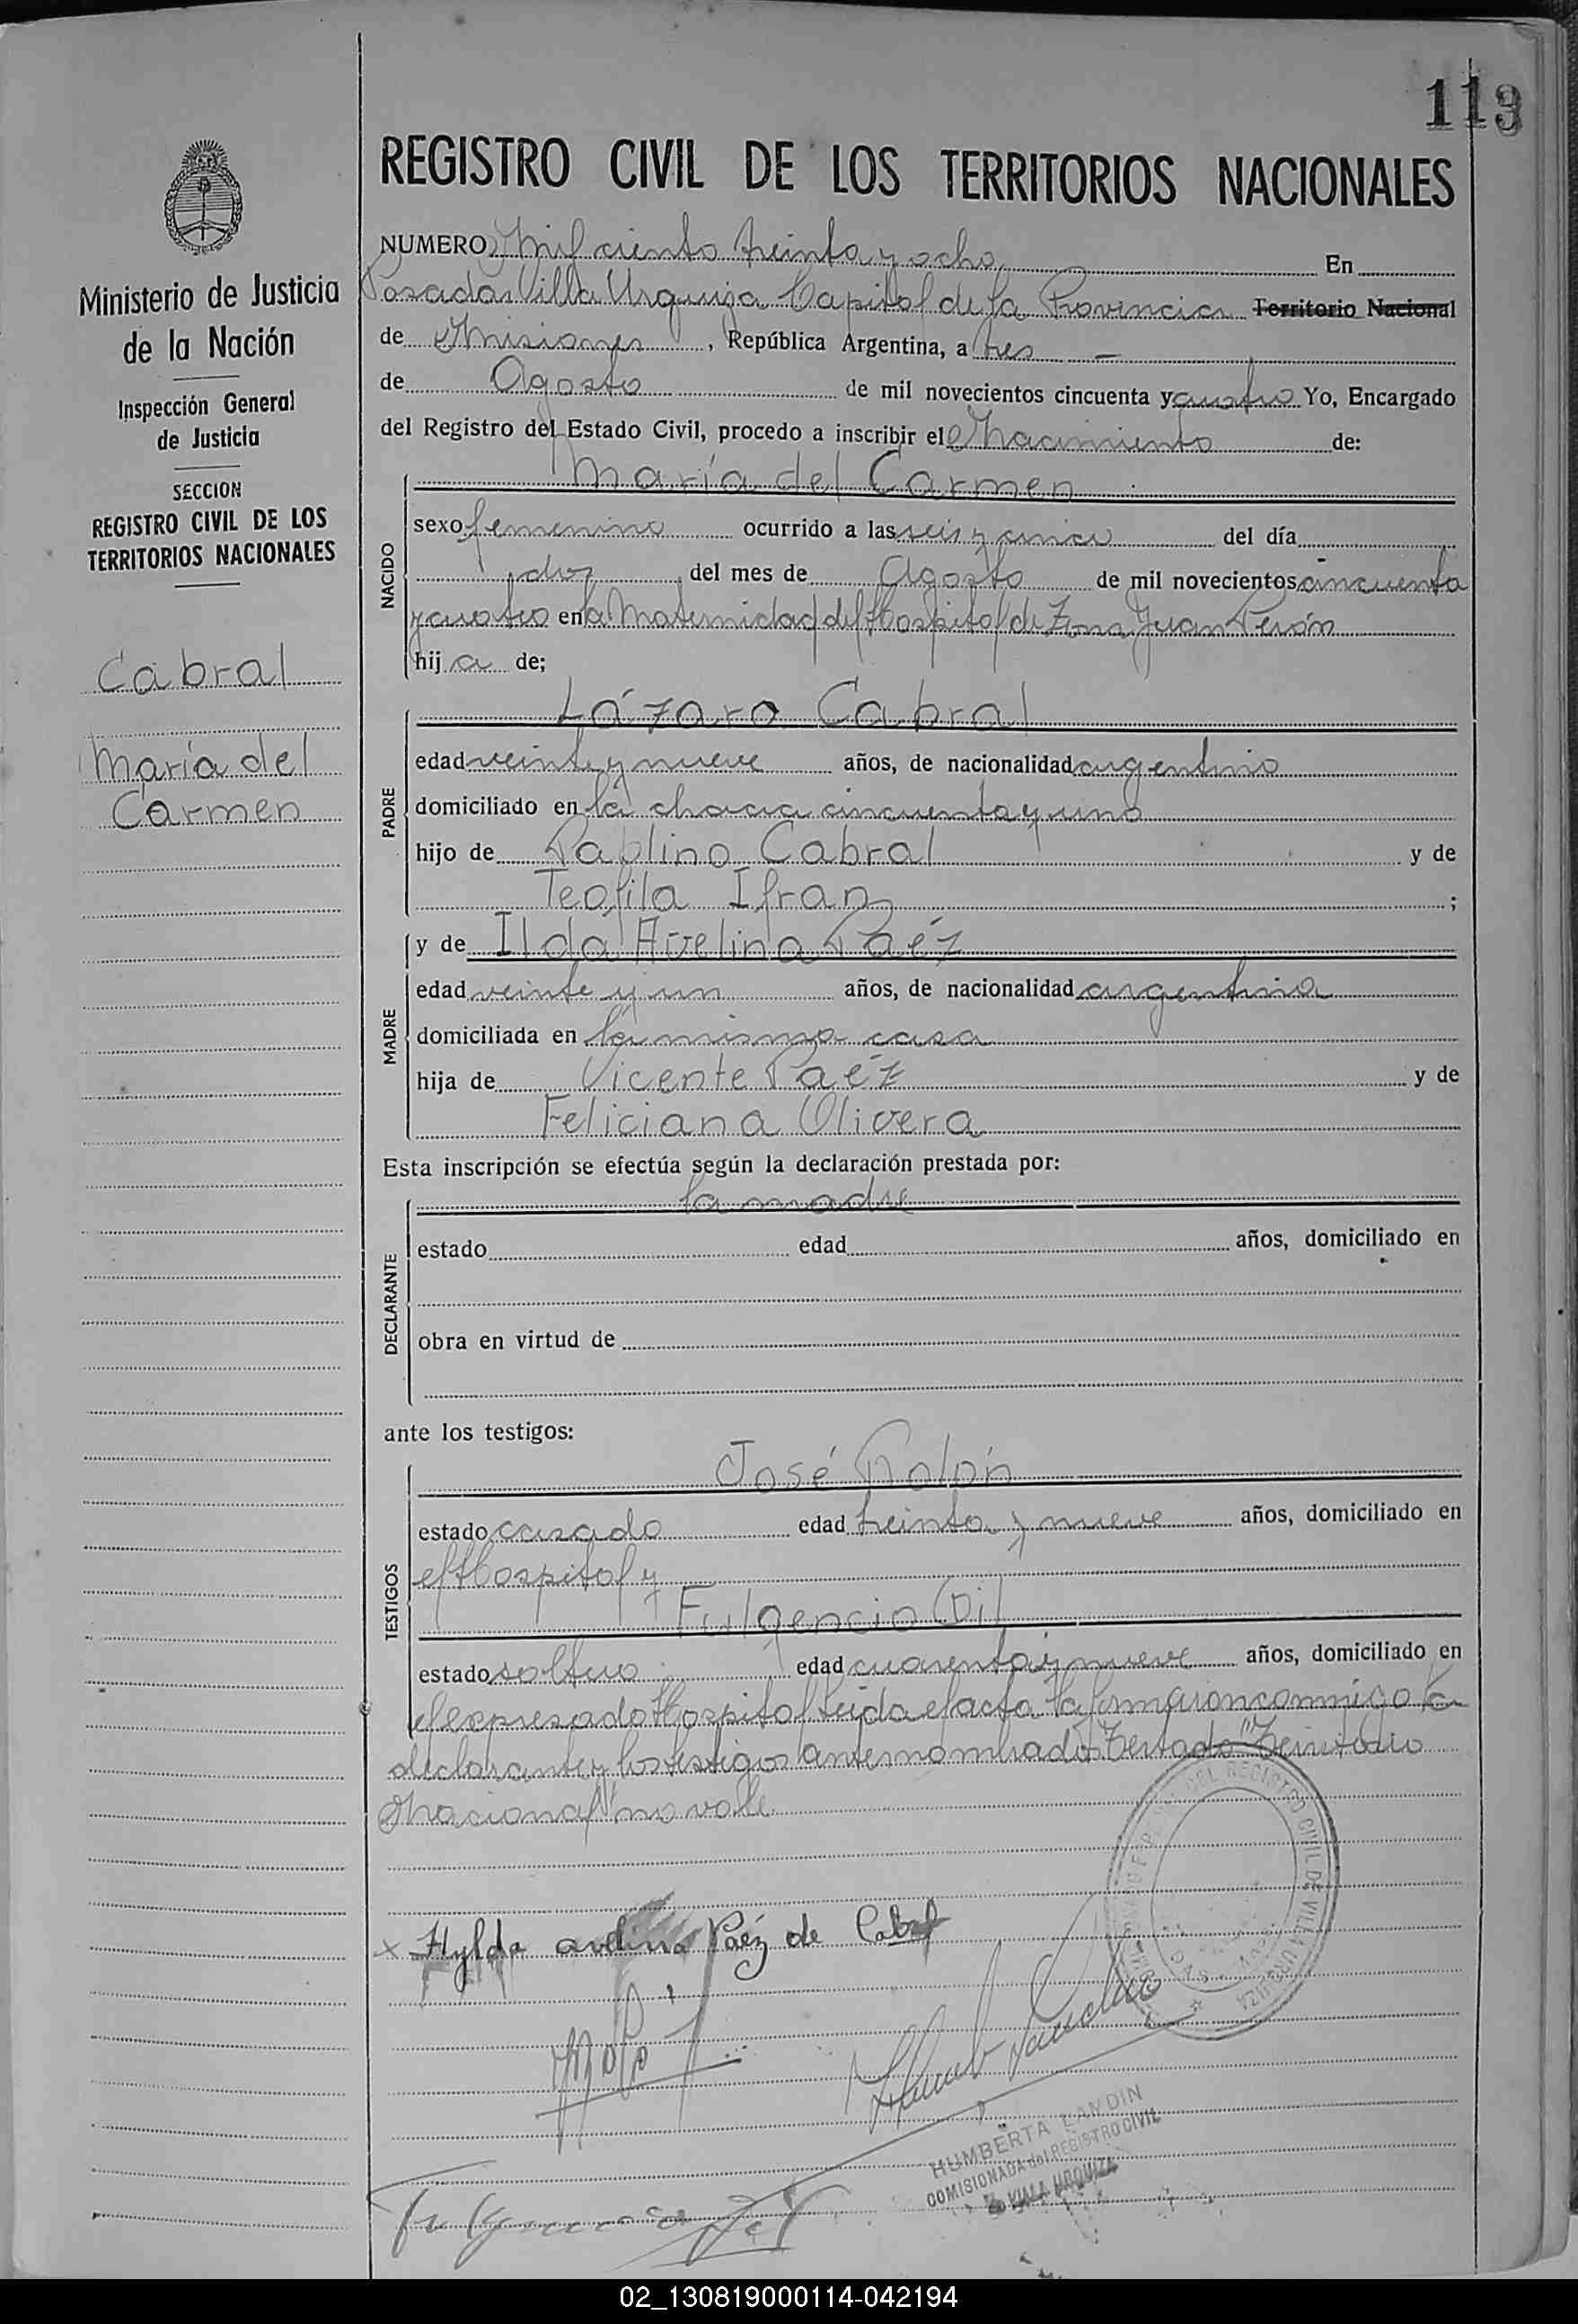 113
REGISTRO CIVIL DE LOS TERRITORIOS NACIONALES
Ministerio de Justicia
de la Nación
Inspección General
de Justicia
SECCION
REGISTRO CIVIL DE LOS
TERRITORIOS NACIONALES
Cabral
María del
Carmen
NUMERO Mil ciento treinta y ocho En
Posadas Villa Urquiza Capital de la Provincia Territorio Nacional
de Misiones, República Argentina, a tres —
de Agosto de mil novecientos cincuenta y cuatro Yo, Encargado
del Registro del Estado Civil, procedo a inscribir el Nacimiento de:
María del Carmen
NACIDO
sexo femenino ocurrido a las seis y cinco del día
dos del mes de Agosto de mil novecientos cincuenta
y cuatro en la Maternidad del Hospital de Zona Juan Perón
hija de;
Lázaro Cabral
PADRE
edad veinte y nueve años, de nacionalidad argentino
domiciliado en la chacra cincuenta y uno
hijo de Pablino Cabral y de
Teofila Ifran ;
y de Ilda Avelina Paéz
MADRE
edad veinte y un años, de nacionalidad argentina
domiciliada en la misma casa
hija de Vicente Paéz y de
Feliciana Olivera
Esta inscripción se efectúa según la declaración prestada por:
la madre
DECLARANTE
estado edad años, domiciliado en
obra en virtud de
ante los testigos:
José Rolón
TESTIGOS
estado casado edad treinta y nueve años, domiciliado en
el Hospital y
Fulgencio Gil
estado soltero edad cuarenta y nueve años, domiciliado en
el expresado Hospital Leida el acta la firmaron conmigo la
declarante y los testigos antes nombrados Testado "Territorio
Nacional" no vale
DEL REGISTRO CIVIL DE VILLA URQUIZA
x Hylda avelina Paéz de Cabral
HUMBERTA LANDIN
COMISIONADA del REGISTRO CIVIL
de VILLA URQUIZA
02_130819000114-042194